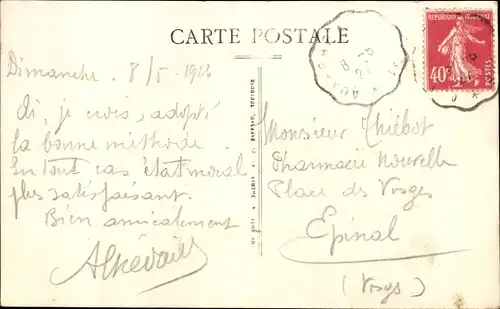 CARTE POSTALE
REPUBLIQUE FRANÇAISE
40c
POSTES
Dimanche 8/5
Ai, je crois, adopté
la bonne méthode.
En tout cas état moral
plus satisfaisant.
Bien amicalement
Monsieur Thiébot
Pharmacie Nouvelle
Place des Vosges
Epinal
(Vosges)